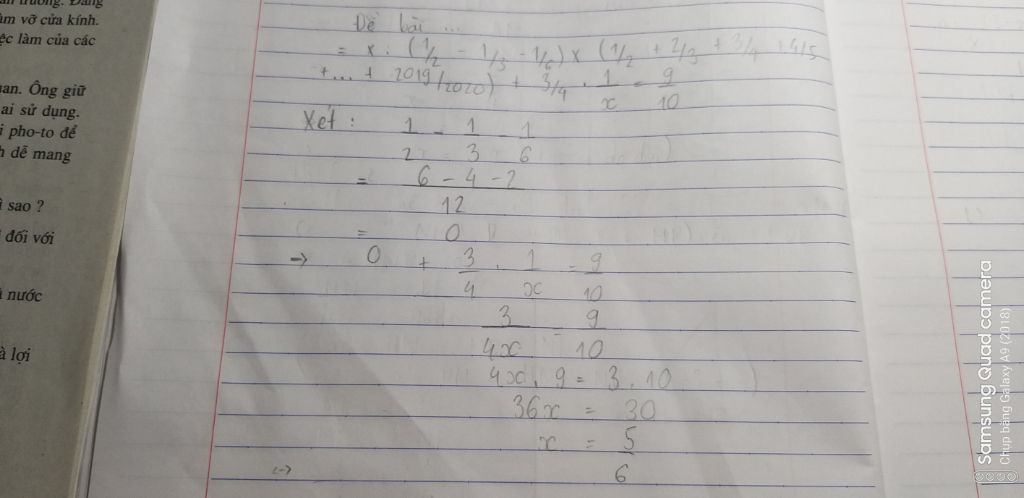 àm vỡ cửa kính.
ệc làm của các
an. Ông giữ
ai sử dụng.
i pho-to để
dễ mang
sao ?
đối với
nước
à lợi
Đề bài ...
= x . (1/2 - 1/3 - 1/6) x (1/2 + 2/3 + 3/4 + 4/5
+ ... + 2019/2020) + 3/4 . 1/x = 9/10
Xét : 1/2 - 1/3 - 1/6
= (6 - 4 - 2)/12
= 0
→ 0 + 3/4 . 1/x = 9/10
3/4x = 9/10
4x . 9 = 3 . 10
36x = 30
x = 5/6
Samsung Quad camera
Chụp bằng Galaxy A9 (2018)